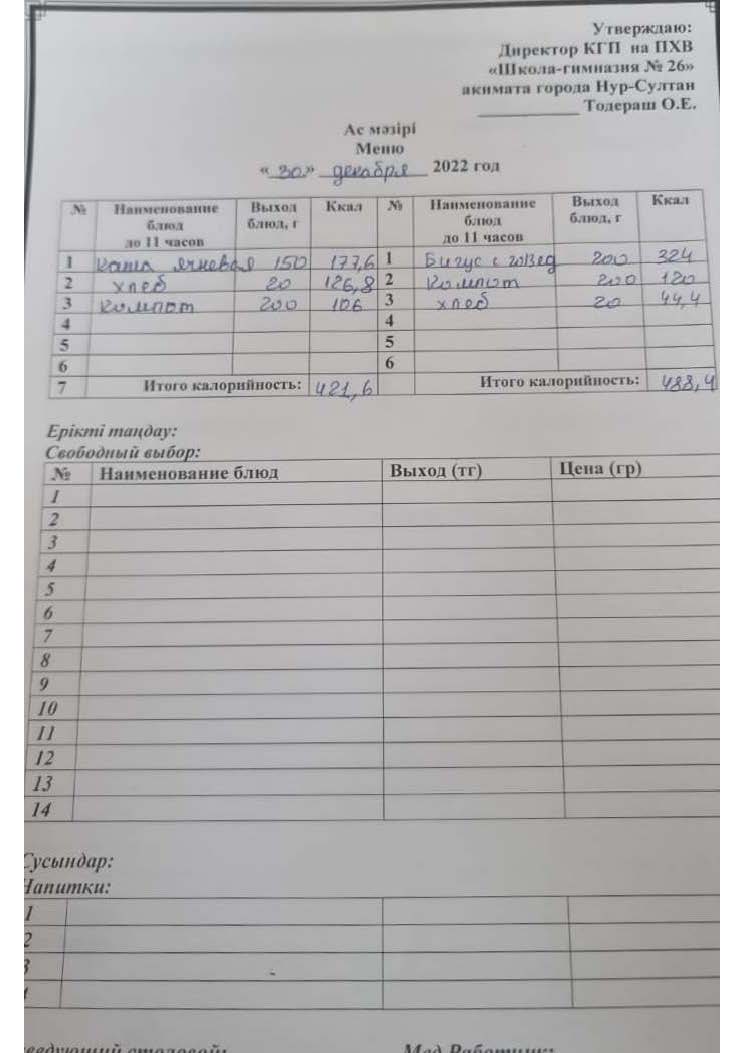 Утверждаю:
Директор КГП на ПХВ
«Школа-гимназия № 26»
акимата города Нур-Султан
____________ Тодераш О.Е.
Ас мәзірі
Меню
«30» декабря 2022 год
№ Наименование блюд до 11 часов Выход блюд, г Ккал № Наименование блюд до 11 часов Выход блюд, г Ккал
1 Каша ячневая 150 177,6 1 Бигус с говяд 200 324
2 хлеб 20 126,8 2 Компот 200 120
3 Компот 200 106 3 хлеб 20 44,4
4 4
5 5
6 6
7 Итого калорийность: 421,6 Итого калорийность: 488,4
Ерікті таңдау:
Свободный выбор:
№ Наименование блюд Выход (тг) Цена (гр)
1
2
3
4
5
6
7
8
9
10
11
12
13
14
Сусындар:
Напитки:
1
2
3
Мед.Работник: